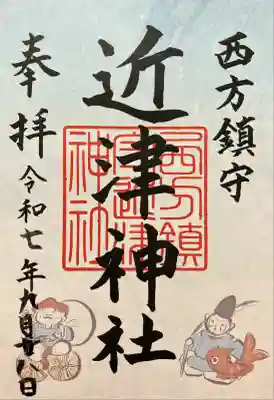 西方鎮守
近津神社
奉拝
令和七年九月十八日
西方鎮
守近津
神社